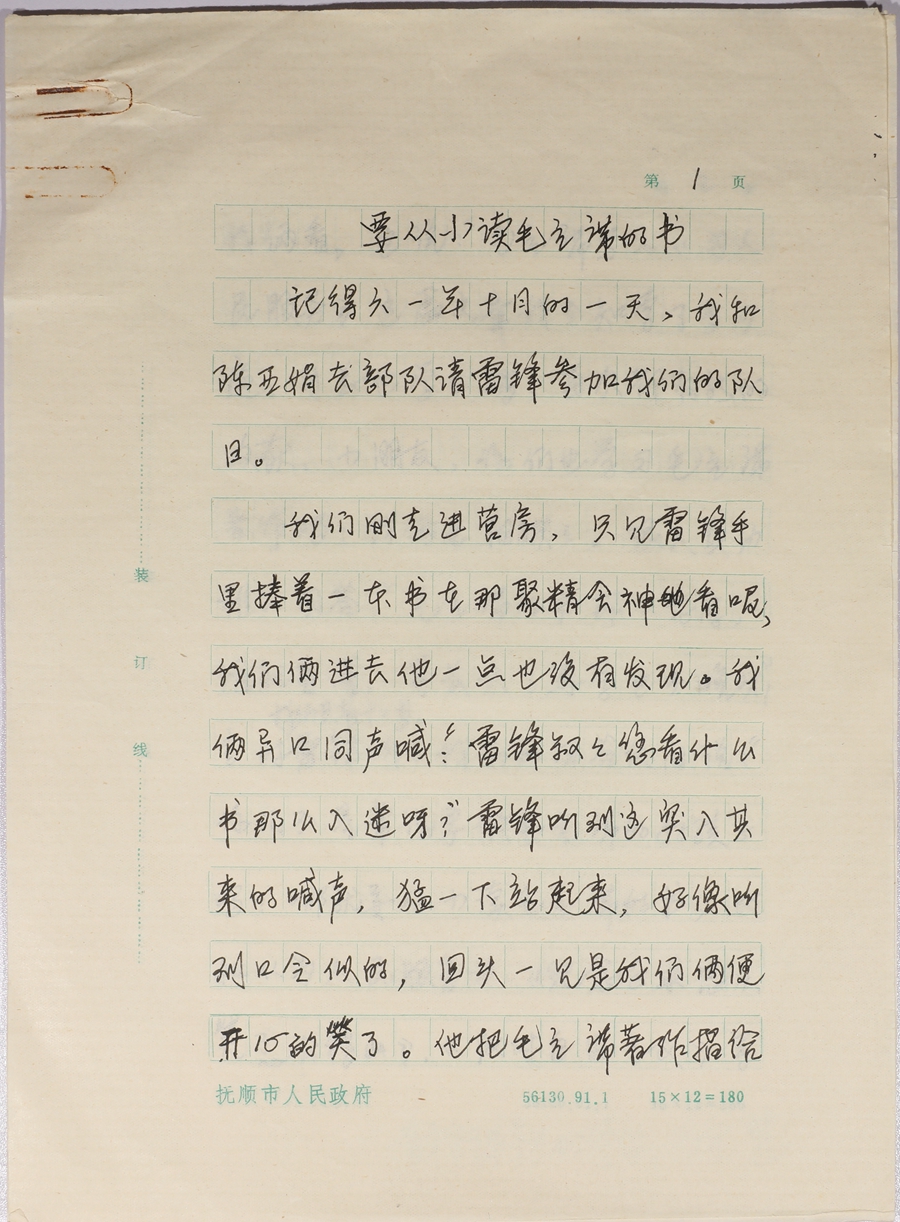 第 1 页
要从小读毛主席的书
记得六一年十月的一天、我和
陈亚娟去部队请雷锋参加我们的队
日。
我们刚走进营房，只见雷锋手
里捧着一本书在那聚精会神地看呢、
我们俩进去他一点也没有发现。我
俩异口同声喊：“雷锋叔々您看什么
书那么入迷呀？”雷锋听到这突入其
来的喊声，猛一下站起来，好像听
到口令似的，回头一见是我们俩便
开心的笑了。他把毛主席著作描给
装
订
线
抚顺市人民政府 56130.91.1 15×12=180